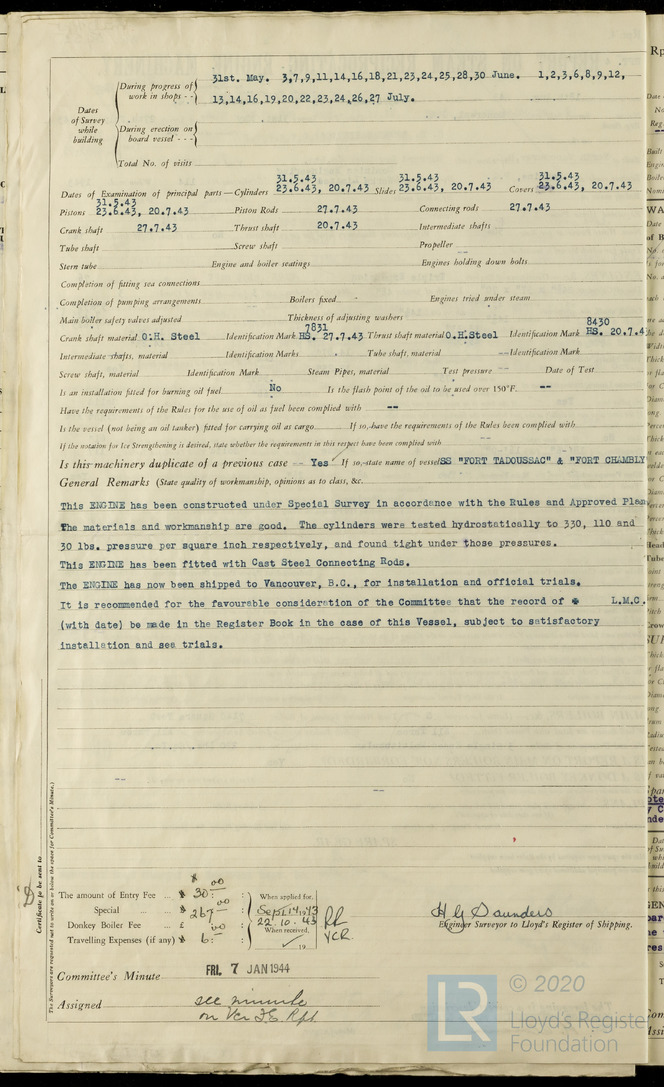 31st. May. 3,7,9,11,14,16,18,21,23,24,25,28,30 June. 1,2,3,6,8,9,12,
During progress of work in shops - -
13,14,16,19,20,22,23,24,26,27 July.
Dates of Survey while building
During erection on board vessel - - -
Total No. of visits
31.5.43 31.5.43 31.5.43
Dates of Examination of principal parts—Cylinders 23.6.43, 20.7.43 Slides 23.6.43, 20.7.43 Covers 23.6.43, 20.7.43
31.5.43
Pistons 23.6.43, 20.7.43 Piston Rods 27.7.43 Connecting rods 27.7.43
Crank shaft 27.7.43 Thrust shaft 20.7.43 Intermediate shafts
Tube shaft Screw shaft Propeller
Stern tube Engine and boiler seatings Engines holding down bolts
Completion of fitting sea connections
Completion of pumping arrangements Boilers fixed Engines tried under steam
Main boiler safety valves adjusted Thickness of adjusting washers
7831 8430
Crank shaft material O.H. Steel Identification Mark HS. 27.7.43 Thrust shaft material O.H.Steel Identification Mark HS. 20.7.4
Intermediate shafts, material Identification Marks Tube shaft, material -- Identification Mark
Screw shaft, material Identification Mark Steam Pipes, material Test pressure -- Date of Test
Is an installation fitted for burning oil fuel No Is the flash point of the oil to be used over 150°F. --
Have the requirements of the Rules for the use of oil as fuel been complied with --
Is the vessel (not being an oil tanker) fitted for carrying oil as cargo If so, have the requirements of the Rules been complied with
If the notation for Ice Strengthening is desired, state whether the requirements in this respect have been complied with --
Is this machinery duplicate of a previous case -- Yes If so, state name of vessel SS "FORT TADOUSSAC" & "FORT CHAMBLY
General Remarks (State quality of workmanship, opinions as to class, &c.
This ENGINE has been constructed under Special Survey in accordance with the Rules and Approved Plan
The materials and workmanship are good. The cylinders were tested hydrostatically to 330, 110 and
30 lbs. pressure per square inch respectively, and found tight under those pressures.
This ENGINE has been fitted with Cast Steel Connecting Rods.
The ENGINE has now been shipped to Vancouver, B.C., for installation and official trials.
It is recommended for the favourable consideration of the Committee that the record of L.M.C.
(with date) be made in the Register Book in the case of this Vessel, subject to satisfactory
installation and sea trials.
Certificate to be sent to
(The Surveyors are requested not to write on or below the space for Committee's Minute.)
The amount of Entry Fee ... $ 30:00 When applied for,
Special ... ... $ 267:00 Sept 14, 1943
Donkey Boiler Fee ... £ 22.10.43
When received,
Travelling Expenses (if any) $ 6:00 19
VCR.
H G Saunders
Engineer Surveyor to Lloyd's Register of Shipping.
Committee's Minute FRI. 7 JAN 1944
Assigned see minute
on Vcr F.E. Rpt.
© 2020
LR
Lloyd's Registe
Foundation